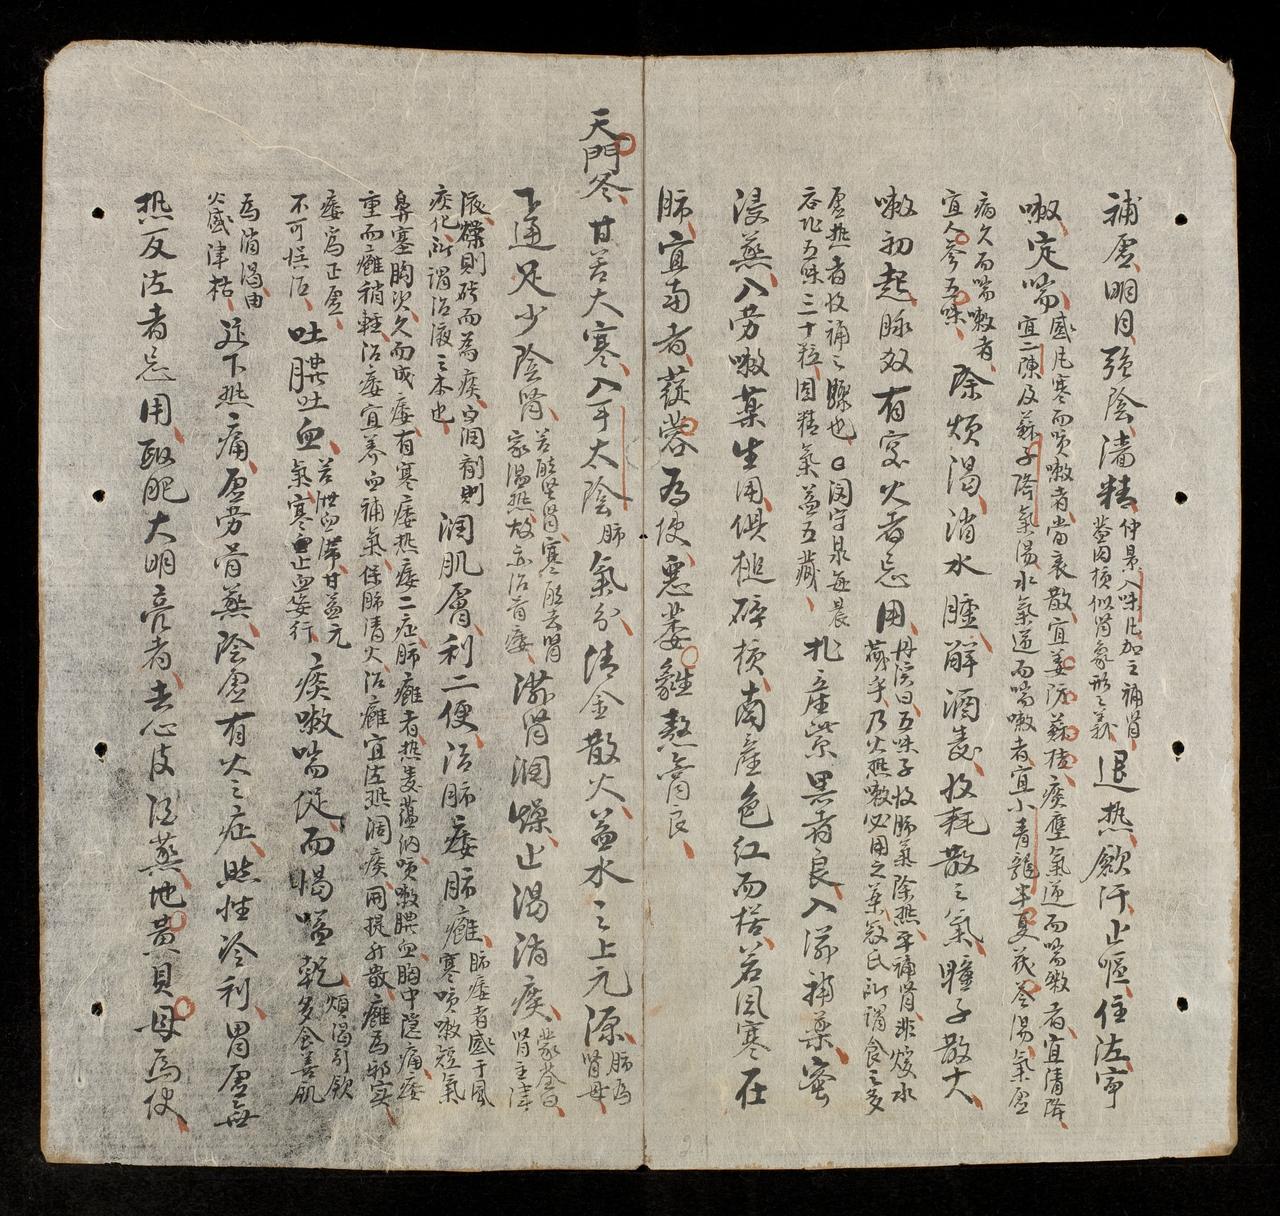 補虛明目强陰濇精仲景八味凡加之補腎盖內核似腎象形之義退热歛汗止嘔住泻寧
嗽定喘感风寒而咳嗽者當表散宜羗防蘇桔痰壅氣逆而喘嗽者宜清降宜二陳及蘇子降氣湯水氣逆而喘嗽者宜小青龍半夏茯苓湯氣虛
病久而喘嗽者宜人參五味除烦渴消水腫解酒毒收耗散之氣瞳子散大
嗽初起脉数有实火者忌用丹溪曰五味子收肺氣除热平補腎非煖水藏乎乃火热嗽必用之药寇氏所謂食之多
虛热者收補之驟也曰闵守泉每晨吞北五味三十粒固精氣益五藏北産紫黒者良入滋補藥蜜
浸蒸入劳嗽薬生用俱槌碎核南産色红而枯若风寒在
肺宜南者蓯蓉为使惡萎蕤熬膏良
天門冬甘苦大寒入手太陰肺氣分清金散火益水之上元源肺为腎母
下通足少陰腎苦能坚腎寒能去腎家湿热故亦治骨痿滋腎潤燥止渴消痰蒙荃曰腎主津
液燥則砖而為痰白润劑則痰化所謂治液之本也润肌膚利二便治肺痿肺癰肺痿者感于風寒咳嗽短氣
鼻塞胸次久而成痿有寒痿热痿二症肺癰者热毒蕴纳咳嗽膿血胸中隐痛痿重而癰稍輕治痿宜养血補氣保肺清火治癰宜泻热润痰開提升散癰為邪实
痿寫正虛不可悮治吐膿吐血苦泄血滞甘益元氣寒止血妄行痰嗽喘促而惕嗌乾烦渴引飲多食善肌
為消渴由火盛津枯近下热痛虛劳骨蒸陰虛有火之症㷖性冷利胃虛無
热反泻者忌用取肥大明亮者去心皮酒蒸地黄貝母為使